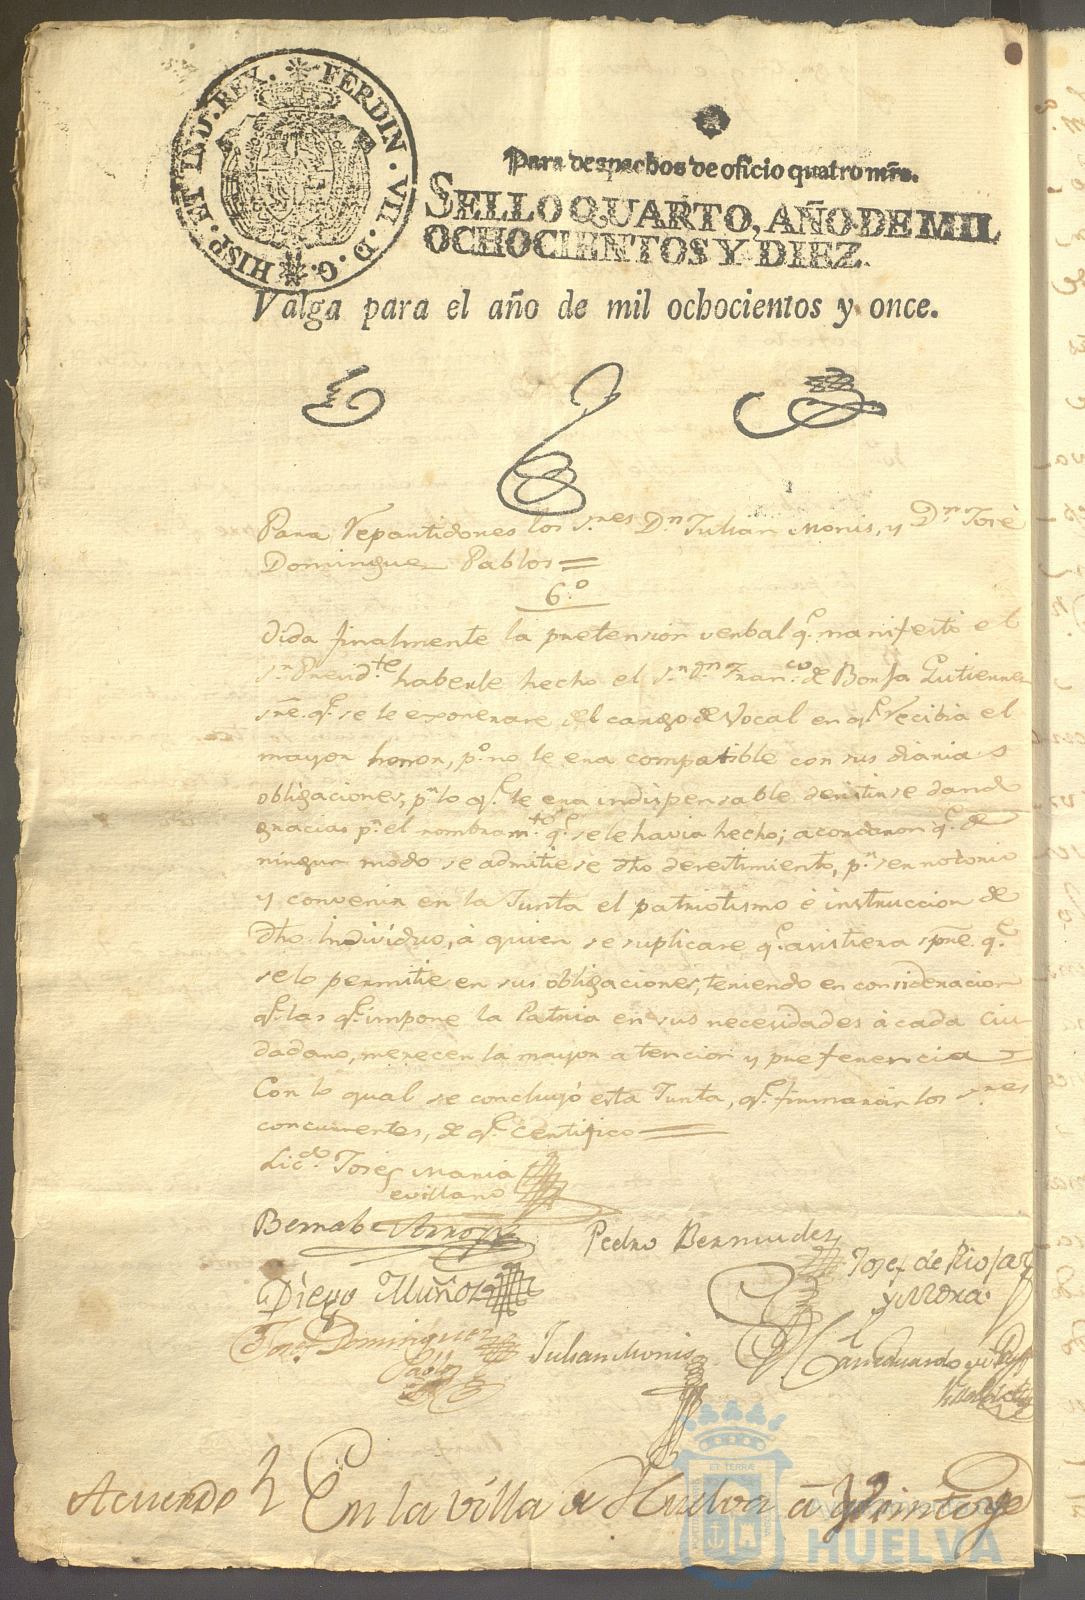 HISP. ET IND. REX. FERDIN. VII. D. G.
Para despachos de oficio quatro mrs.
SELLO QUARTO, AÑO DE MIL
OCHOCIENTOS Y DIEZ.
Valga para el año de mil ochocientos y once.
Para Repartidores los S.res D.n Julian Monis, y D.n José
Dominguez Pablos =
6.º
dida finalmente la pretension verbal q.e manifestó el
s.r Presid.te haberle hecho el s.r d.n Fran.co de Borja Gutierrez
sre. q.e se le exonerare del cargo de Vocal en q.e recibia el
mayor honor, p.o no le era compatible con sus diarias
obligaciones, p.r lo q.e le era indispensable desistirse dando
gracias p.r el nombram.to q.e se le havia hecho; acordaron q.e de
ningun modo se admitiese dho desestimiento, p.r ser notorio
y convenir en la Junta el patriotismo é instruccion de
dho Individuo, á quien se suplicare q.e asistiera spre. q.e
se lo permitie en sus obligaciones, teniendo en consideracion
q.e las q.e impone la Patria en sus necesidades á cada Ciu
dadano, merecen la mayor atencion y preferencia =
Con lo qual se concluyó esta Junta, q.e firmarán los s.res
concurrentes, de q.e certifico =
Lic.do José Maria
Sevillano
Bernabe Arroyo
Pedro Bermudez
Josef de Rioja
y Mora
Diego Muñoz
Josef Dominguez
Pablos
Julian Monis
Acuerdo En la villa de Huelva á Veinte y
ET TERRÆ
Ayuntamiento de
HUELVA